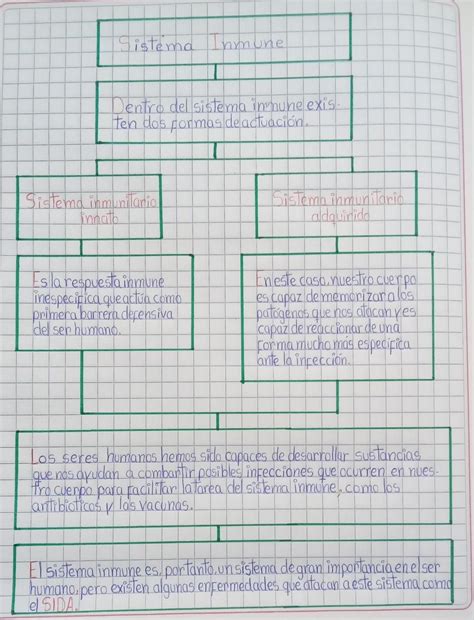 Sistema Inmune
Dentro del sistema inmune exis-
ten dos formas de actuación.
Sistema inmunitario
innato
Sistema inmunitario
adquirido
Es la respuesta inmune
inespecífica que actúa como
primera barrera defensiva
del ser humano.
En este caso, nuestro cuerpo
es capaz de memorizar a los
patógenos que nos atacan y es
capaz de reaccionar de una
forma mucho más específica
ante la infección.
Los seres humanos hemos sido capaces de desarrollar sustancias
que nos ayudan a combatir posibles infecciones que ocurren en nues-
tro cuerpo para facilitar la tarea del sistema inmune, como los
antibióticos y las vacunas.
El sistema inmune es, por tanto, un sistema de gran importancia en el ser
humano, pero existen algunas enfermedades que atacan a este sistema como
el SIDA.